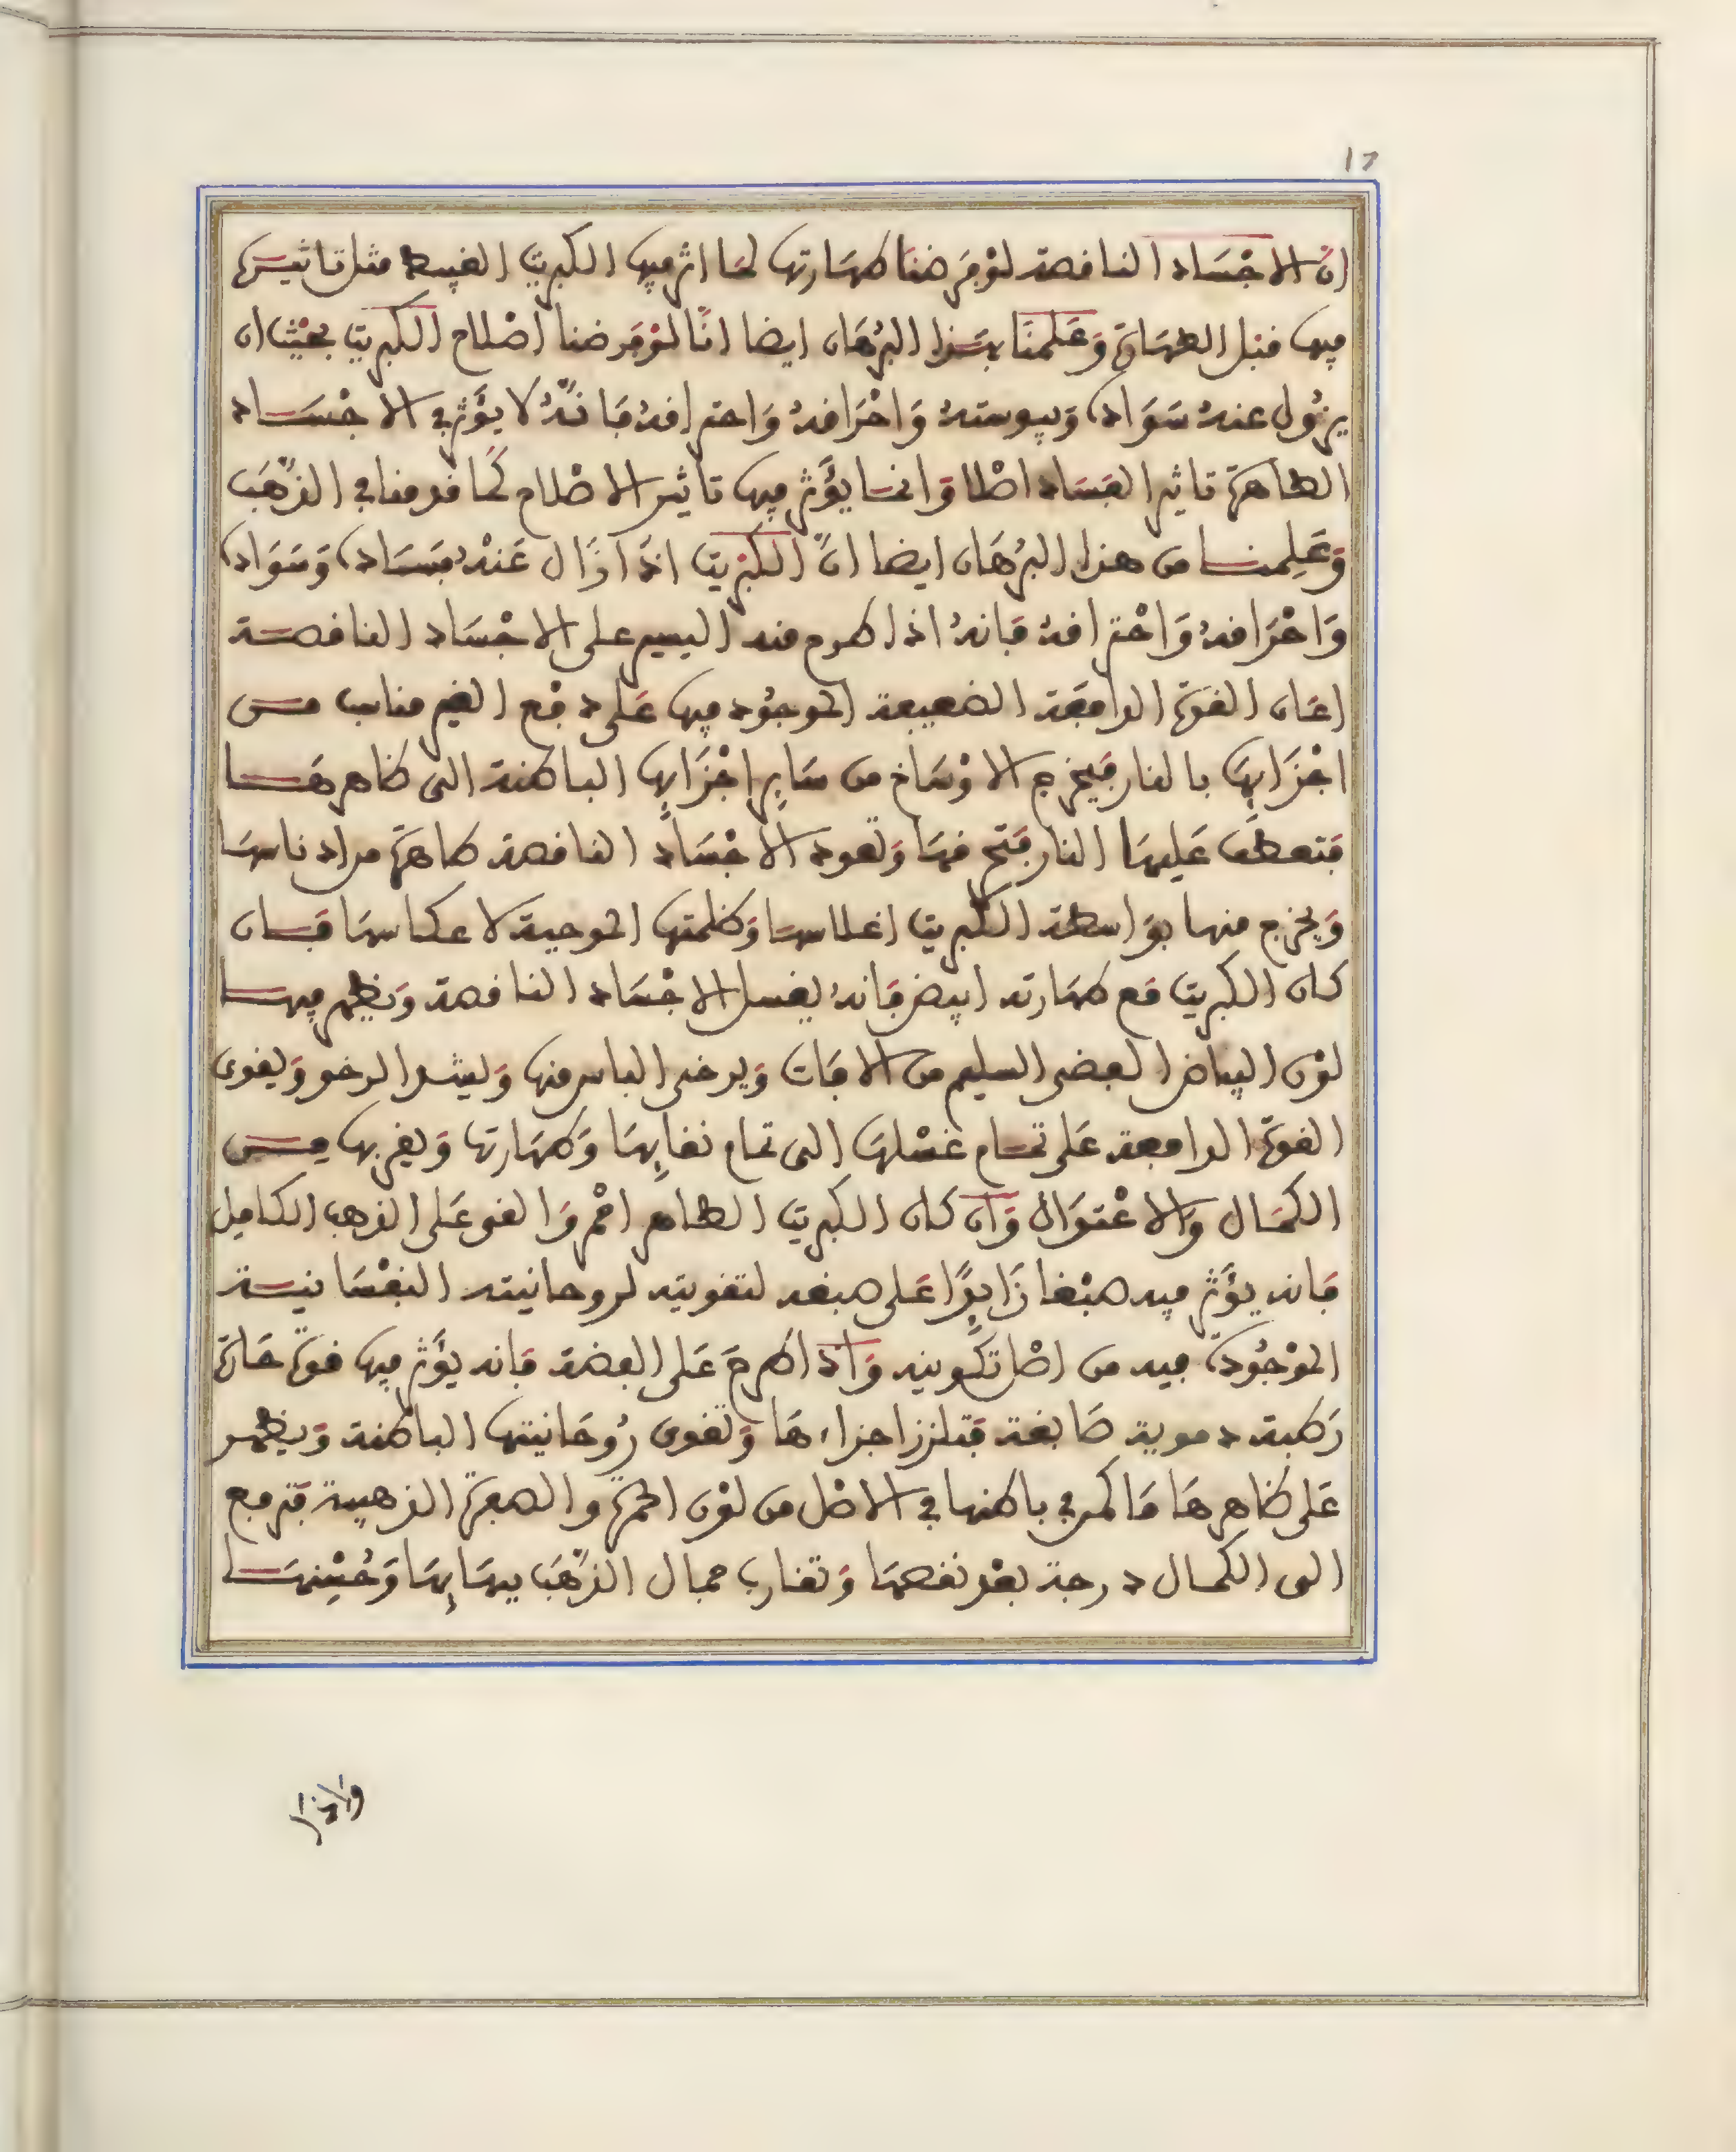 17
ان الاجساد الناقصة لو فرضنا طهارتها لما اثر فيها الكبريت الغبيط مثل تاثيره
فيها قبل الطهارة وعلمنا بهذا البرهان ايضا انا لو فرضنا اصلاح الكبريت بحيث ان
يزول عنه سواده ويبوسته واحراقه واحتراقه فانه لا يؤثر في الاجساد
الطاهرة تاثير الفساد اصلا وانما يؤثر فيها تاثير الاصلاح كما قدمنا في الذهب
وعلمنا من هذا البرهان ايضا ان الكبريت اذا زال عنه فساده وسواده
واحراقه واحتراقه فانه اذا طرح منه اليسير على الاجساد الناقصة
اعان القوة الدافعة الضعيفة الموجود فيها على دفع الغير مناسب من
اجزايها بالنار فيخرج الاوساخ من ساير اجزايها الباطنة الى ظاهرها
فتعطف عليها النار فتحرقها وتعود الاجساد الناقصة طاهرة من ادناسها
ويخرج منها بواسطة الكبريت اغلاسها وظلمتها الموجبة لاعكاسها فان
كان الكبريت مع طهارته ابيض فانه يغسل الاجساد الناقصة ويظهر فيها
لون البياض الفضي السليم من الافات ويرخى اليابس منها ويشد الرخو ويقوى
القوة الدافعة على تمام غسلها الى تمام نقايها وطهارتها ويقربها من
الكمال والاعتدال وان كان الكبريت الطاهر احمر والقى على الذهب الكامل
فانه يؤثر فيه صبغا زايدا على صبغه لتقويته لروحانيته النفسانية
الموجودة فيه من اصل تكوينه واذا طرح على الفضة فانه يؤثر فيها قوة حارة
رطبة دموية صابغة فتلزز اجزاءها وتقوى روحانيتها الباطنة ويظهر
على ظاهرها ما كمن في باطنها في الاصل من لون الحمرة والصفرة الذهبية فترفع
الى الكمال درجة بعد نقصها وتقارب جمال الذهب ببهايها وحسنها
واذا